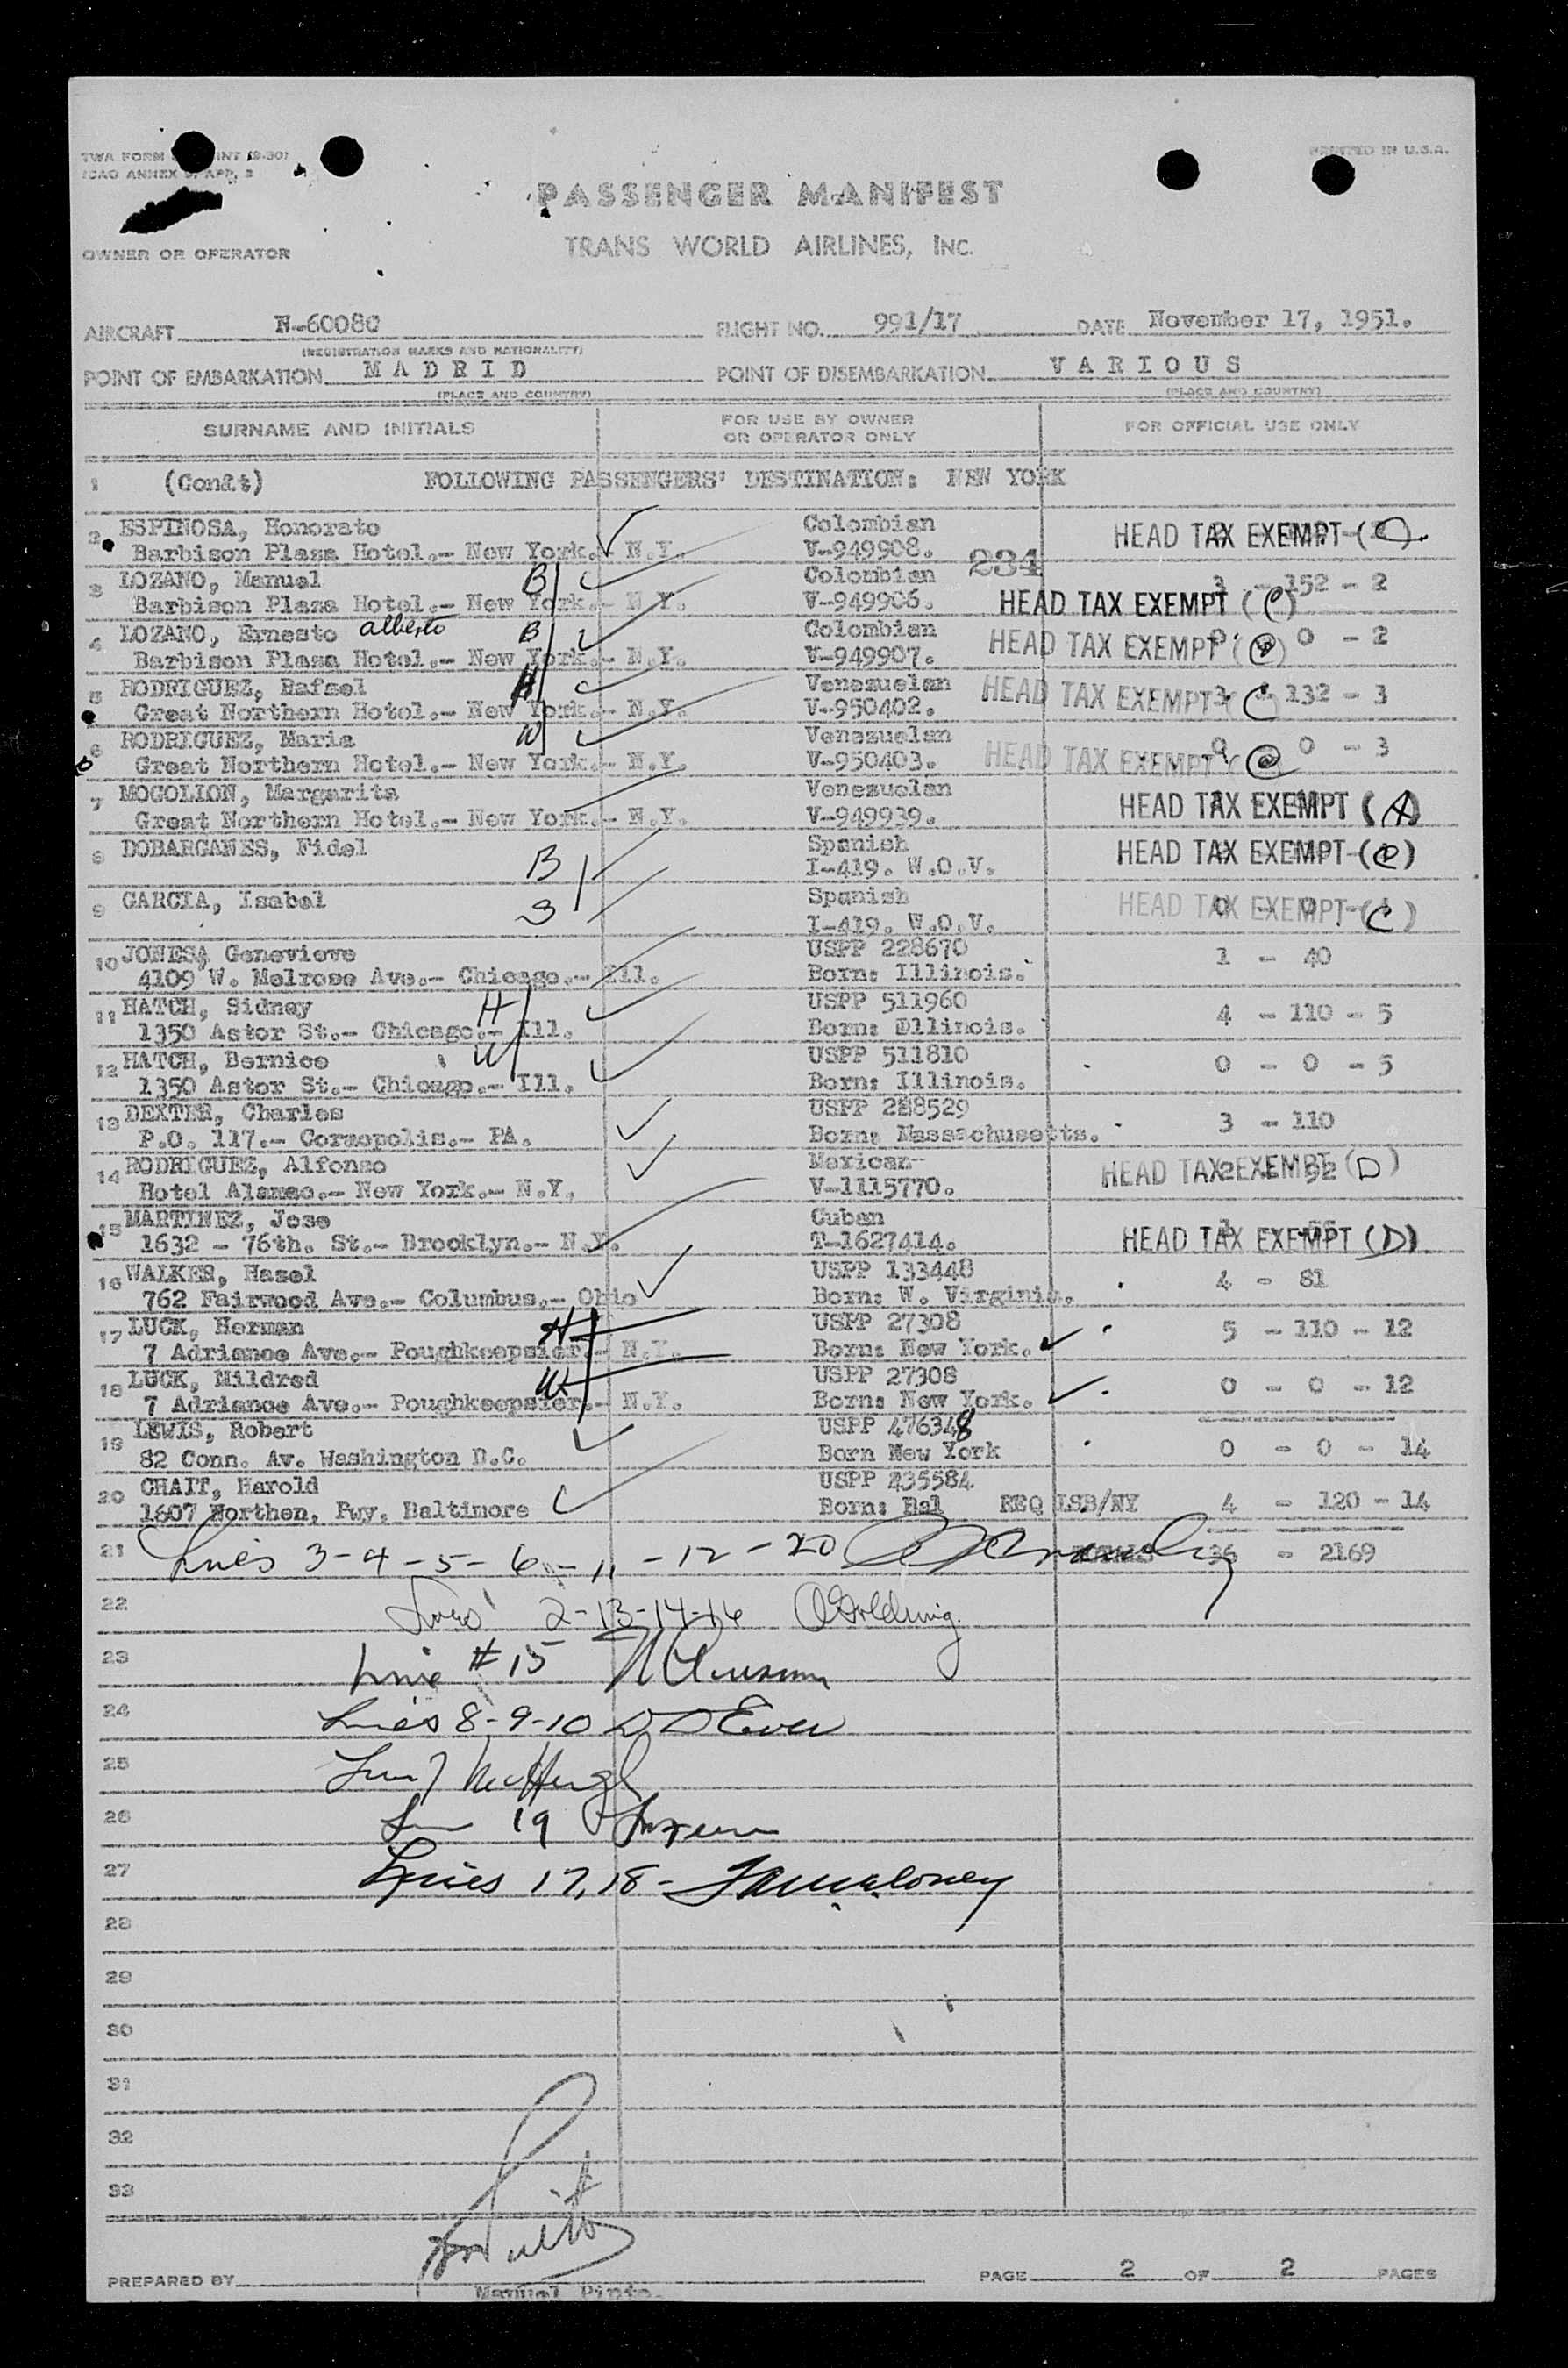 PRINTED IN U.S.A.
TWA FORM
ICAO ANNEX 9, APP. 2
PASSENGER MANIFEST
TRANS WORLD AIRLINES, INC.
OWNER OR OPERATOR
AIRCRAFT N-6008C FLIGHT NO. 991/17 DATE November 17, 1951.
(REGISTRATION MARKS AND NATIONALITY)
POINT OF EMBARKATION M A D R I D POINT OF DISEMBARKATION V A R I O U S
(PLACE AND COUNTRY) (PLACE AND COUNTRY)
SURNAME AND INITIALS FOR USE BY OWNER OR OPERATOR ONLY FOR OFFICIAL USE ONLY
1 (Con&t) FOLLOWING PASSENGERS' DESTINATION: NEW YORK
2 ESPINOSA, Honorato Colombian HEAD TAX EXEMPT (C)
Barbison Plaza Hotel.- New York.- N.Y. V-949908.
234
3 LOZANO, Manuel B Colombian 3 - 152 - 2
Barbison Plaza Hotel.- New York.- N.Y. V-949906. HEAD TAX EXEMPT (C)
4 LOZANO, Ernesto alberto B Colombian HEAD TAX EXEMPT 0 0 - 2
Barbison Plaza Hotel.- New York.- N.Y. V-949907.
5 RODRIGUEZ, Rafael H Venezuelan HEAD TAX EXEMPT (C) 3 - 132 - 3
Great Northern Hotel.- New York.- N.Y. V-950402.
6 RODRIGUEZ, Maria W Venezuelan 0 0 - 3
Great Northern Hotel.- New York.- N.Y. V-950403. HEAD TAX EXEMPT
7 MOGOLION, Margarita Venezuelan HEAD TAX EXEMPT (A)
Great Northern Hotel.- New York.- N.Y. V-949939.
8 DOBARGANES, Fidel B Spanish HEAD TAX EXEMPT (C)
I-419. W.O.V.
9 GARCIA, Isabel S Spanish HEAD TAX EXEMPT (C)
I-419. W.O.V.
10 JONES, Genevieve USPP 228670 1 - 40
4109 W. Melrose Ave.- Chicago.- Ill. Born: Illinois.
11 HATCH, Sidney H USPP 511960 4 - 110 - 5
1350 Astor St.- Chicago.- Ill. Born: Dllinois.
12 HATCH, Bernice W USPP 511810 0 - 0 - 5
1350 Astor St.- Chicago.- Ill. Born: Illinois.
13 DEXTER, Charles USPP 228529 3 - 110
P.O. 117.- Coraopolis.- PA. Born: Massachusetts.
14 RODRIGUEZ, Alfonso Mexican HEAD TAX EXEMPT (D)
Hotel Alamac.- New York.- N.Y. V-1115770.
15 MARTINEZ, Jose Cuban HEAD TAX EXEMPT (D)
1632 - 76th. St.- Brooklyn.- N.Y. T-1627414.
16 WALKER, Hazel USPP 133448 4 - 81
762 Fairwood Ave.- Columbus.- Ohio Born: W. Virginia.
17 LUCK, Herman H USPP 27308 5 - 110 - 12
7 Adriance Ave.- Poughkeepsier.- N.Y. Born: New York.
18 LUCK, Mildred W USPP 27308 0 - 0 - 12
7 Adriance Ave.- Poughkeepsier.- N.Y. Born: New York.
19 LEWIS, Robert USPP 476348
82 Conn. Av. Washington D.C. Born New York 0 - 0 - 14
20 CHAIT, Harold USPP 435584
1607 Northen, Pwy, Baltimore Born: Bal REQ LSB/NY 4 - 120 - 14
21 Lines 3-4-5-6-11-12-20 TOTALS 36 - 2169
22 Lines 2-13-14-16
23 Line #15
24 Lines 8-9-10
25 Line 7 McHugh
26 Line 19
27 Lines 17, 18 - Maloney
28
29
30
31
32
33
PREPARED BY Manuel Pinto. PAGE 2 OF 2 PAGES